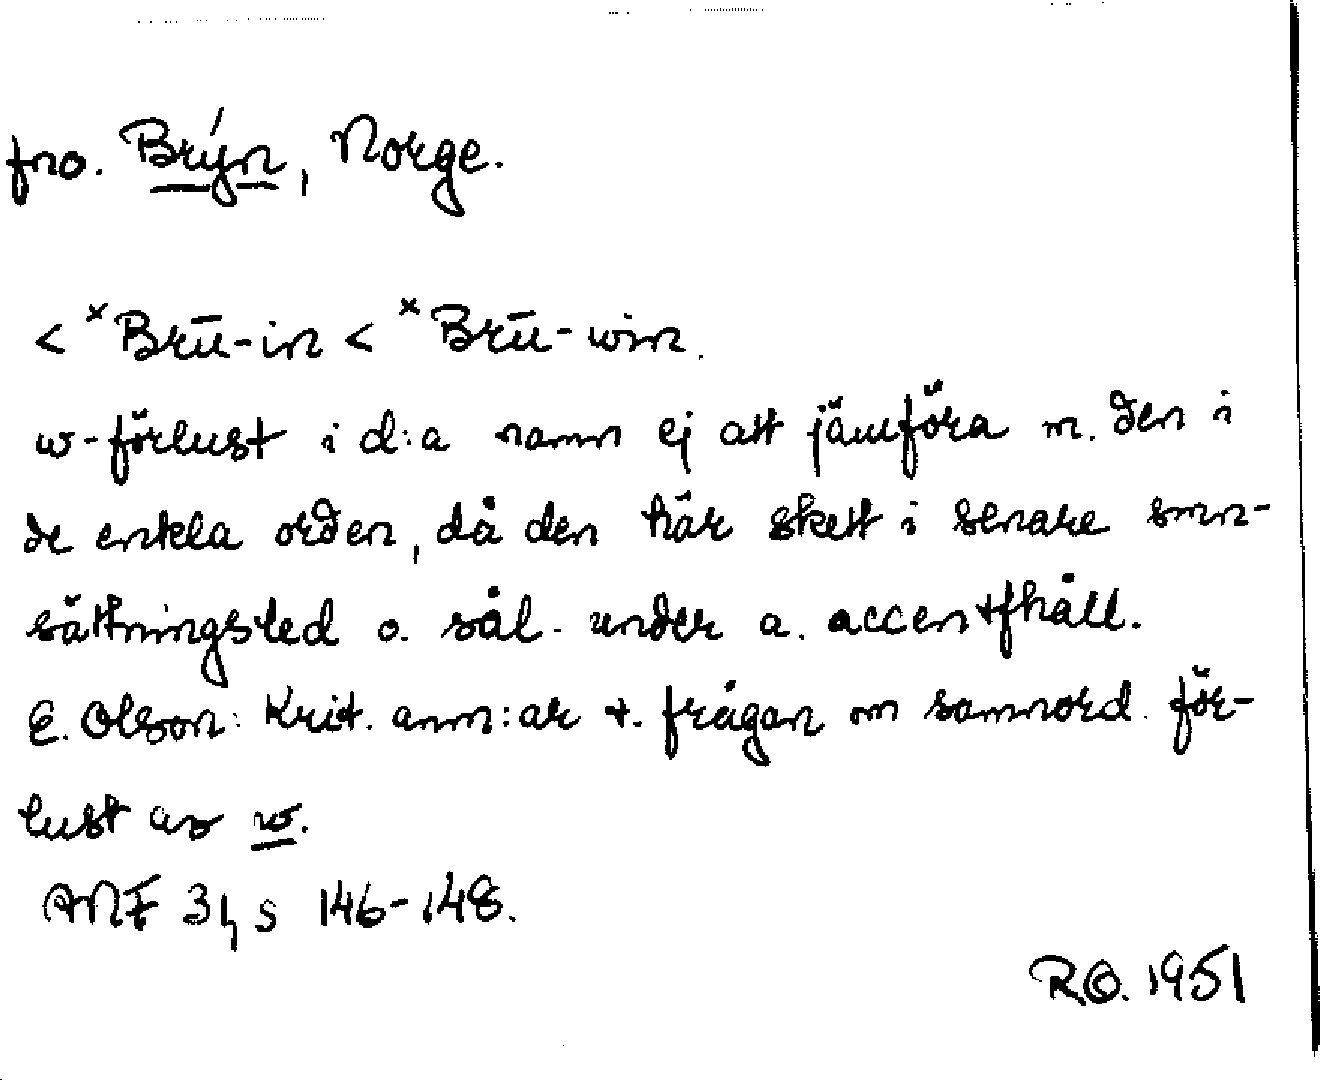 fno. Brýn, Norge.
< ˣBrū-in < ˣBrū-win.
w-förlust i d:a namn ej att jämföra m. den i
de enkla orden, då den här skett i senare smn-
sättningsled o. sål. under a. accentfhåll.
E. Olson: Krit. anm:ar t. frågan om samnord. för-
lust av w.
ANF 31, s 146-148.
RO. 1951